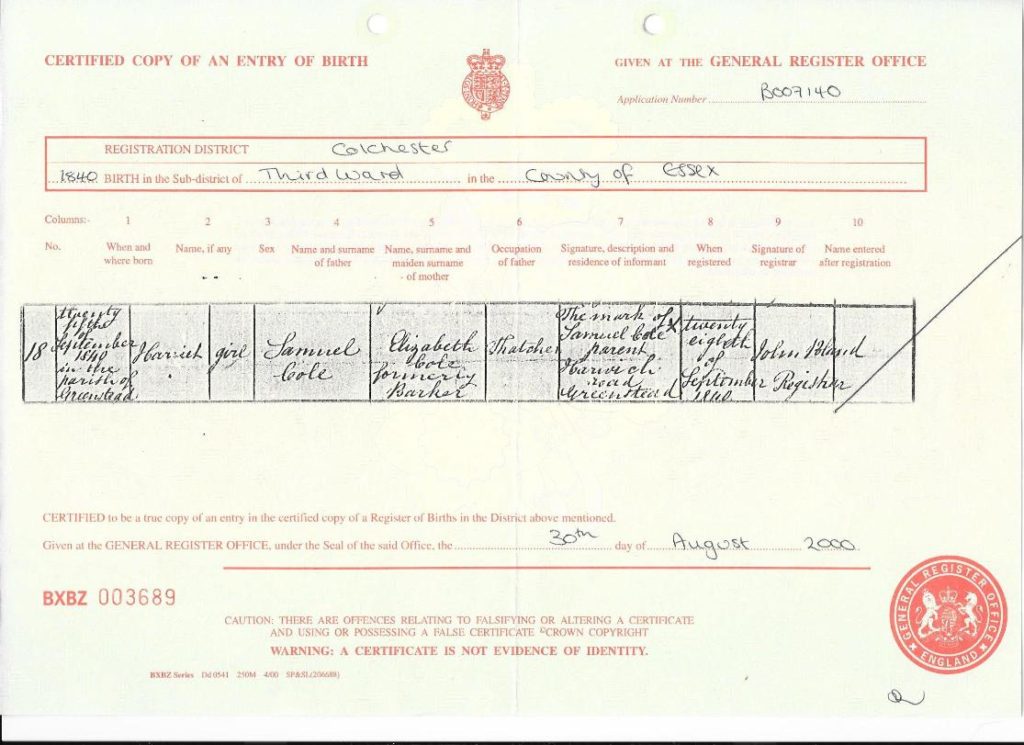 CERTIFIED COPY OF AN ENTRY OF BIRTH
GIVEN AT THE GENERAL REGISTER OFFICE
Application Number B007140
REGISTRATION DISTRICT Colchester
1840 BIRTH in the Sub-district of Third Ward in the County of Essex
Columns:- 1 2 3 4 5 6 7 8 9 10
No. When and where born Name, if any Sex Name and surname of father Name, surname and maiden surname of mother Occupation of father Signature, description and residence of informant When registered Signature of registrar Name entered after registration
18
twenty
fifth
of
September
1840
in the
parish of
Greenstead
Harriet
girl
Samuel
Cole
Elizabeth
Cole
formerly
Barker
Thatcher
The mark of
Samuel Cole X
parent
Harwich
road
Greenstead
twenty
eighth
of
September
1840
John Bland
Registrar
CERTIFIED to be a true copy of an entry in the certified copy of a Register of Births in the District above mentioned.
Given at the GENERAL REGISTER OFFICE, under the Seal of the said Office, the 30th day of August 2000
BXBZ 003689
CAUTION: THERE ARE OFFENCES RELATING TO FALSIFYING OR ALTERING A CERTIFICATE
AND USING OR POSSESSING A FALSE CERTIFICATE ©CROWN COPYRIGHT
WARNING: A CERTIFICATE IS NOT EVIDENCE OF IDENTITY.
BXBZ Series Dd 0541 250M 4/00 SP&SL(206688)
GENERAL REGISTER OFFICE
ENGLAND